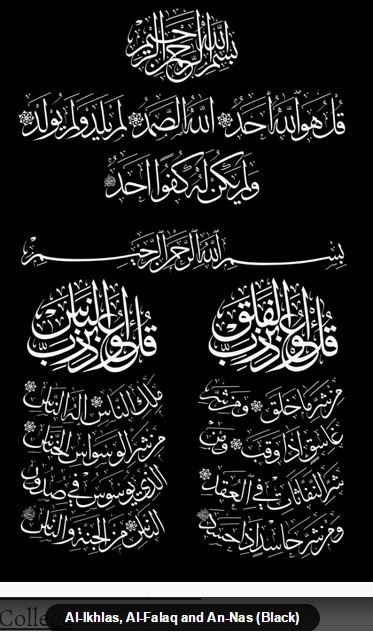 بسم الله الرحمن الرحيم
قُلْ هُوَ اللّٰهُ أَحَدٌ اللّٰهُ الصَّمَدُ لَمْ يَلِدْ وَلَمْ يُولَدْ
وَلَمْ يَكُنْ لَهُ كُفُوًا أَحَدٌ
بِسْمِ اللّٰهِ الرَّحْمٰنِ الرَّحِيمِ
قل أعوذ برب الفلق
من شر ما خلق ومن شر
غاسق إذا وقب ومن
شر النفاثات في العقد
ومن شر حاسد إذا حسد
قل أعوذ برب الناس
ملك الناس إله الناس
من شر الوسواس الخناس
الذي يوسوس في صدور
الناس من الجنة والناس
Al-Ikhlas, Al-Falaq and An-Nas (Black)